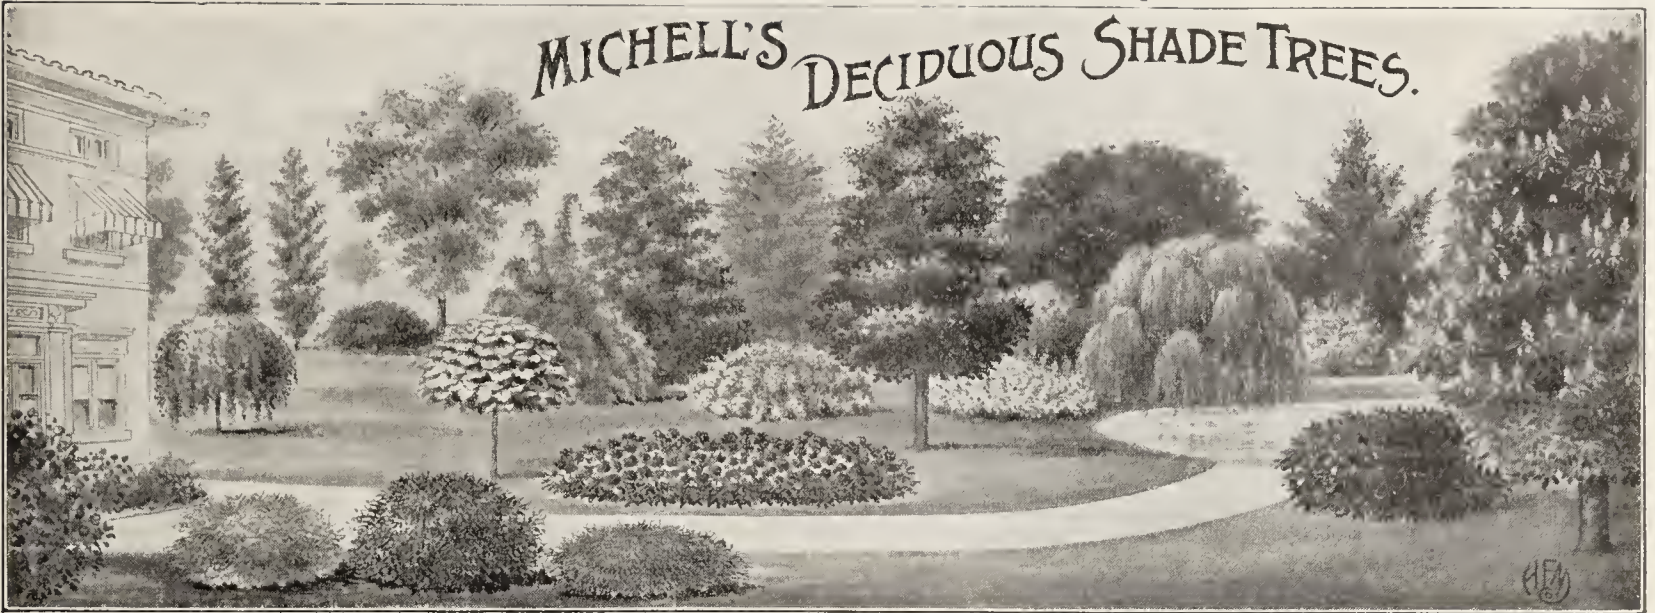 MICHELL'S DECIDUOUS SHADE TREES.
HFM Co